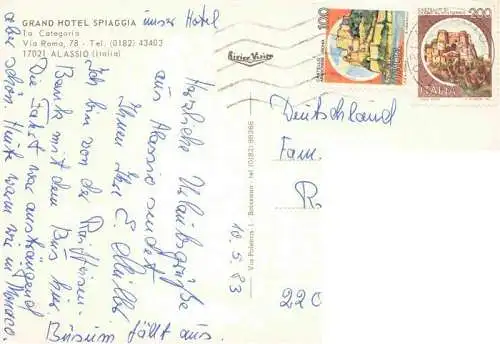 GRAND HOTEL SPIAGGIA
1a Categoria
Via Roma, 78 - Tel. (0182) 43403
17021 ALASSIO (Italia)
unser Hotel
Herzliche Urlaubsgrüße
aus Alassio sendet
Ihnen Ihr E. Müller
Ich bin von der Raiffeisen-
Bank mit dem Bus hier.
Die Fahrt war anstrengend
aber schön. Heute waren wir in Monaco.
Büsum fällt aus.
10.5.83
Via Polenza, 1 - Boissano - tel. (0182) 98366
100
200
ITALIA
Deutschland
Fam.
R
220